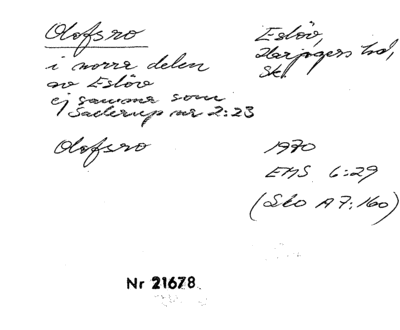 Olofsro
Eslöv,
Harjagers hd,
Sk.
i norra delen
av Eslöv
ej samma som
Sallerup nr 2:23
Olofsro
1970
EMS 6:29
(Sko A7:160)
Nr 21678